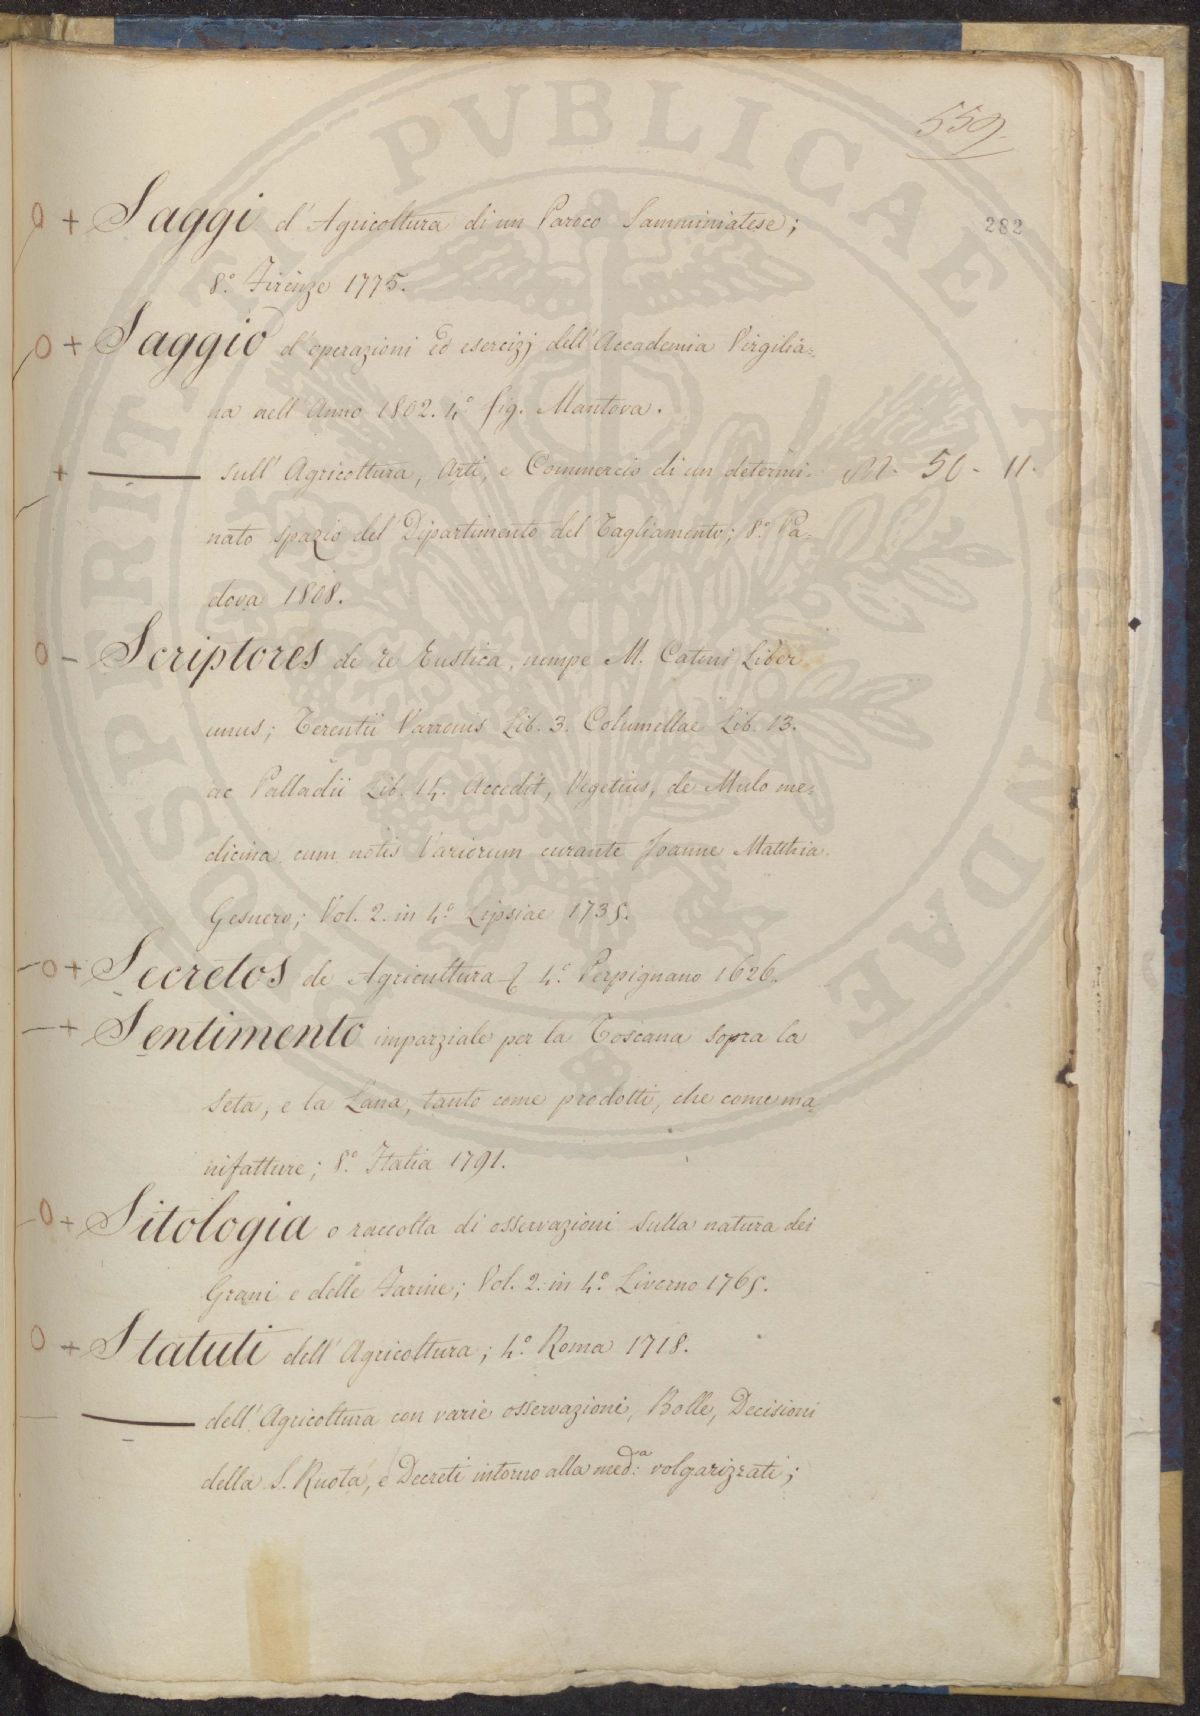 559
282
Saggi d'Agricoltura di un Paroco Samminiatese;
8.° Firenze 1775.
Saggio d'operazioni ed esercizj dell'Accademia Virgilia=
na nell'Anno 1802. 4.° fig. Mantova.
sull'Agricoltura, Arti, e Commercio di un determi= M- 50- 11-
nato spazio del Dipartimento del Tagliamento; 8.° Pa=
dova 1808.
Scriptores de re Rustica, nempe M. Catoni Liber
unus; Terentii Varronis Lib. 3. Columellae Lib. 13.
ac Palladii Lib. 14. Accedit, Vegetius, de Mulo me=
dicina cum notis Variorum curante Joanne Matthia
Gesnero; Vol. 2. in 4.° Lipsiae 1735.
Secretos de Agricultura 4.° Perpignano 1626.
Sentimento imparziale per la Toscana sopra la
seta, e la Lana, tanto come prodotti, che come ma
nifatture; 8.° Italia 1791.
Sitologia o raccolta di osservazioni sulla natura dei
Grani e delle Farine; Vol. 2. in 4.° Livorno 1765.
Statuti dell'Agricoltura; 4.° Roma 1718.
dell'Agricoltura con varie osservazioni, Bolle, Decisioni
della S. Ruota, e Decreti intorno alla med:ª volgarizzati;
PROSPERITATI PVBLICAE AVGENDAE